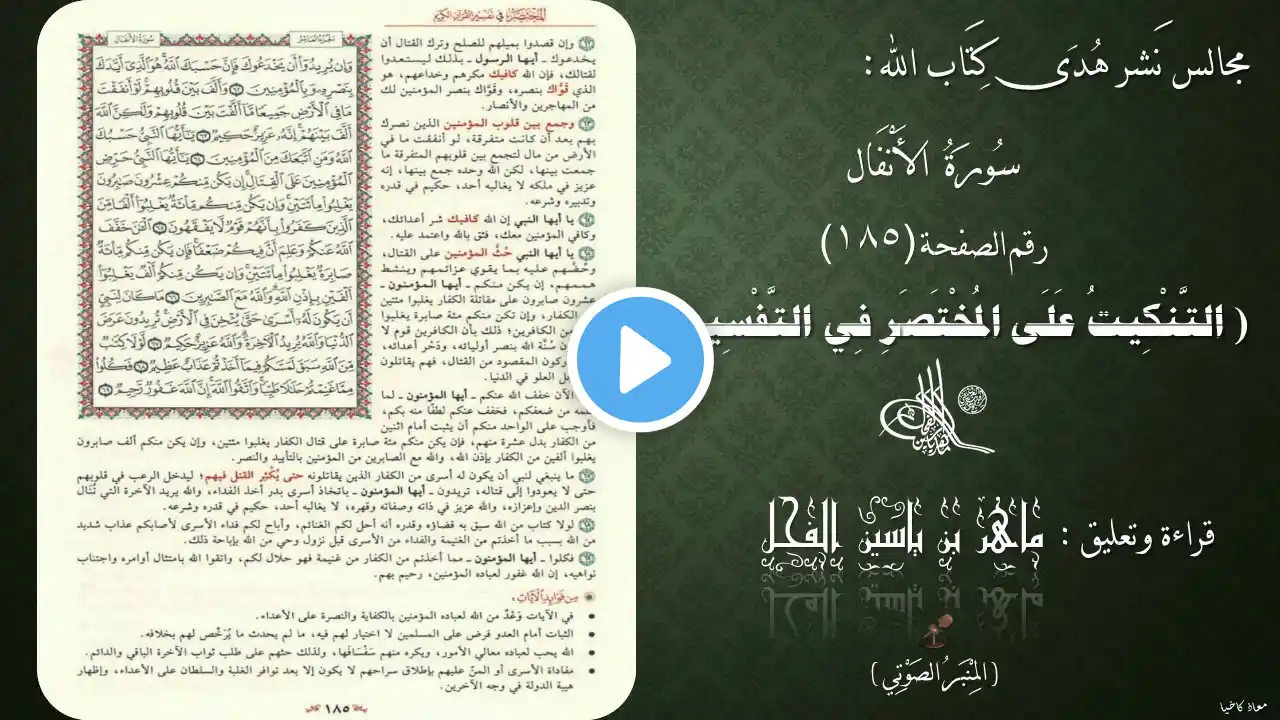 المختصر في تفسير القرآن الكريم
الجزء العاشر
سورة الأنفال
وَإِن يُرِيدُوٓاْ أَن يَخْدَعُوكَ فَإِنَّ حَسْبَكَ ٱللَّهُ هُوَ ٱلَّذِىٓ أَيَّدَكَ
بِنَصْرِهِۦ وَبِٱلْمُؤْمِنِينَ ٦٢ وَأَلَّفَ بَيْنَ قُلُوبِهِمْ لَوْ أَنفَقْتَ
مَا فِى ٱلْأَرْضِ جَمِيعًا مَّآ أَلَّفْتَ بَيْنَ قُلُوبِهِمْ وَلَٰكِنَّ ٱللَّهَ
أَلَّفَ بَيْنَهُمْ إِنَّهُۥ عَزِيزٌ حَكِيمٌ ٦٣ يَٰٓأَيُّهَا ٱلنَّبِىُّ حَسْبُكَ
ٱللَّهُ وَمَنِ ٱتَّبَعَكَ مِنَ ٱلْمُؤْمِنِينَ ٦٤ يَٰٓأَيُّهَا ٱلنَّبِىُّ حَرِّضِ
ٱلْمُؤْمِنِينَ عَلَى ٱلْقِتَالِ إِن يَكُن مِّنكُمْ عِشْرُونَ صَٰبِرُونَ
يَغْلِبُواْ مِاْئَتَيْنِ وَإِن يَكُن مِّنكُم مِّاْئَةٌ يَغْلِبُوٓاْ أَلْفًا مِّنَ
ٱلَّذِينَ كَفَرُواْ بِأَنَّهُمْ قَوْمٌ لَّا يَفْقَهُونَ ٦٥ ٱلْـَٰٔنَ خَفَّفَ
ٱللَّهُ عَنكُمْ وَعَلِمَ أَنَّ فِيكُمْ ضَعْفًا فَإِن يَكُن مِّنكُم مِّاْئَةٌ
صَابِرَةٌ يَغْلِبُواْ مِاْئَتَيْنِ وَإِن يَكُن مِّنكُمْ أَلْفٌ يَغْلِبُوٓاْ
أَلْفَيْنِ بِإِذْنِ ٱللَّهِ وَٱللَّهُ مَعَ ٱلصَّٰبِرِينَ ٦٦ مَا كَانَ لِنَبِىٍّ
أَن يَكُونَ لَهُۥٓ أَسْرَىٰ حَتَّىٰ يُثْخِنَ فِى ٱلْأَرْضِ تُرِيدُونَ عَرَضَ
ٱلدُّنْيَا وَٱللَّهُ يُرِيدُ ٱلْءَاخِرَةَ وَٱللَّهُ عَزِيزٌ حَكِيمٌ ٦٧ لَّوْلَا كِتَٰبٌ
مِّنَ ٱللَّهِ سَبَقَ لَمَسَّكُمْ فِيمَآ أَخَذْتُمْ عَذَابٌ عَظِيمٌ ٦٨ فَكُلُواْ
مِمَّا غَنِمْتُمْ حَلَٰلًا طَيِّبًا وَٱتَّقُواْ ٱللَّهَ إِنَّ ٱللَّهَ غَفُورٌ رَّحِيمٌ ٦٩
٦٢ وإن قصدوا بميلهم للصلح وترك القتال أن
يخدعوك ـ أيها الرسول ـ بذلك ليستعدوا
لقتالك، فإن الله كافيك مكرهم وخداعهم، هو
الذي قَوَّاك بنصره، وقوَّاك بنصر المؤمنين لك
من المهاجرين والأنصار.
٦٣ وجمع بين قلوب المؤمنين الذين نصرك
بهم بعد أن كانت متفرقة، لو أنفقت ما في
الأرض من مال لتجمع بين قلوبهم المتفرقة ما
جمعت بينها، لكن الله وحده جمع بينها، إنه
عزيز في ملكه لا يغالبه أحد، حكيم في قدره
وتدبيره وشرعه.
٦٤ يا أيها النبي إن الله كافيك شر أعدائك،
وكافي المؤمنين معك، فثق بالله واعتمد عليه.
٦٥ يا أيها النبي حُثَّ المؤمنين على القتال،
وحُضَّهم عليه بما يقوي عزائمهم وينشط
هممهم، إن يكن منكم ـ أيها المؤمنون ـ
عشرون صابرون على مقاتلة الكفار يغلبوا مئتين
الكفار، وإن تكن منكم مئة صابرة يغلبوا
من الكافرين؛ ذلك بأن الكافرين قوم لا
ون سُنَّة الله بنصر أوليائه، ودَحْر أعدائه،
ركون المقصود من القتال، فهم يقاتلون
ل العلو في الدنيا.
الآن خفف الله عنكم ـ أيها المؤمنون ـ لما
مه من ضعفكم، فخفف عنكم لطفًا منه بكم،
فأوجب على الواحد منكم أن يثبت أمام اثنين
من الكفار بدل عشرة منهم، فإن يكن منكم مئة صابرة على قتال الكفار يغلبوا مئتين، وإن يكن منكم ألف صابرون
يغلبوا ألفين من الكفار بإذن الله، والله مع الصابرين من المؤمنين بالتأييد والنصر.
٦٧ ما ينبغي لنبي أن يكون له أسرى من الكفار الذين يقاتلونه حتى يُكْثِر القتل فيهم؛ ليدخل الرعب في قلوبهم
حتى لا يعودوا إلى قتاله، تريدون ـ أيها المؤمنون ـ باتخاذ أسرى بدر أخذ الفداء، والله يريد الآخرة التي تُنَال
بنصر الدين وإعزازه، والله عزيز في ذاته وصفاته وقهره، لا يغالبه أحد، حكيم في قدره وشرعه.
٦٨ لولا كتاب من الله سبق به قضاؤه وقدره أنه أحل لكم الغنائم، وأباح لكم فداء الأسرى لأصابكم عذاب شديد
من الله بسبب ما أخذتم من الغنيمة والفداء من الأسرى قبل نزول وحي من الله بإباحة ذلك.
٦٩ فكلوا ـ أيها المؤمنون ـ مما أخذتم من الكفار من غنيمة فهو حلال لكم، واتقوا الله بامتثال أوامره واجتناب
نواهيه، إن الله غفور لعباده المؤمنين، رحيم بهم.
من فوائد الآيات:
• في الآيات وَعْدٌ من الله لعباده المؤمنين بالكفاية والنصرة على الأعداء.
• الثبات أمام العدو فرض على المسلمين لا اختيار لهم فيه، ما لم يحدث ما يُرَخِّص لهم بخلافه.
• الله يحب لعباده معالي الأمور، ويكره منهم سَفْسَافَها، ولذلك حثهم على طلب ثواب الآخرة الباقي والدائم.
• مفاداة الأسرى أو المنّ عليهم بإطلاق سراحهم لا يكون إلا بعد توافر الغلبة والسلطان على الأعداء، وإظهار
هيبة الدولة في وجه الآخرين.
١٨٥
مجالس نَشر هُدَى كِتَاب الله:
سُورَةُ الأَنْفَال
رقم الصفحة (١٨٥)
( التَّنْكِيتُ عَلَى المُخْتَصَرِ فِي التَّفْسِي
قراءة وتعليق : ماهر بن ياسين الفحل
(المِنْبَر الصَوْتِي)
معاذ كاخيا